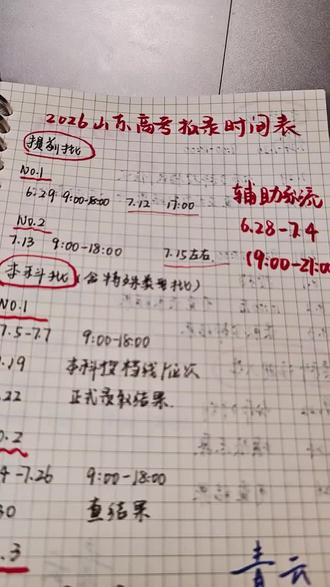 2026山东高考报录时间表
提前批
No.1
6.29 9:00-18:00 7.12 17:00
辅助系统
No.2
6.28-7.4
7.13 9:00-18:00 7.15左右
(9:00-21:00
本科批(含特殊类型批)
No.1
7.5-7.7 9:00-18:00
.19 本科投档线/位次
.22 正式录取结果.
o.2
4-7.26 9:00-18:00
30 查结果
.3
青云